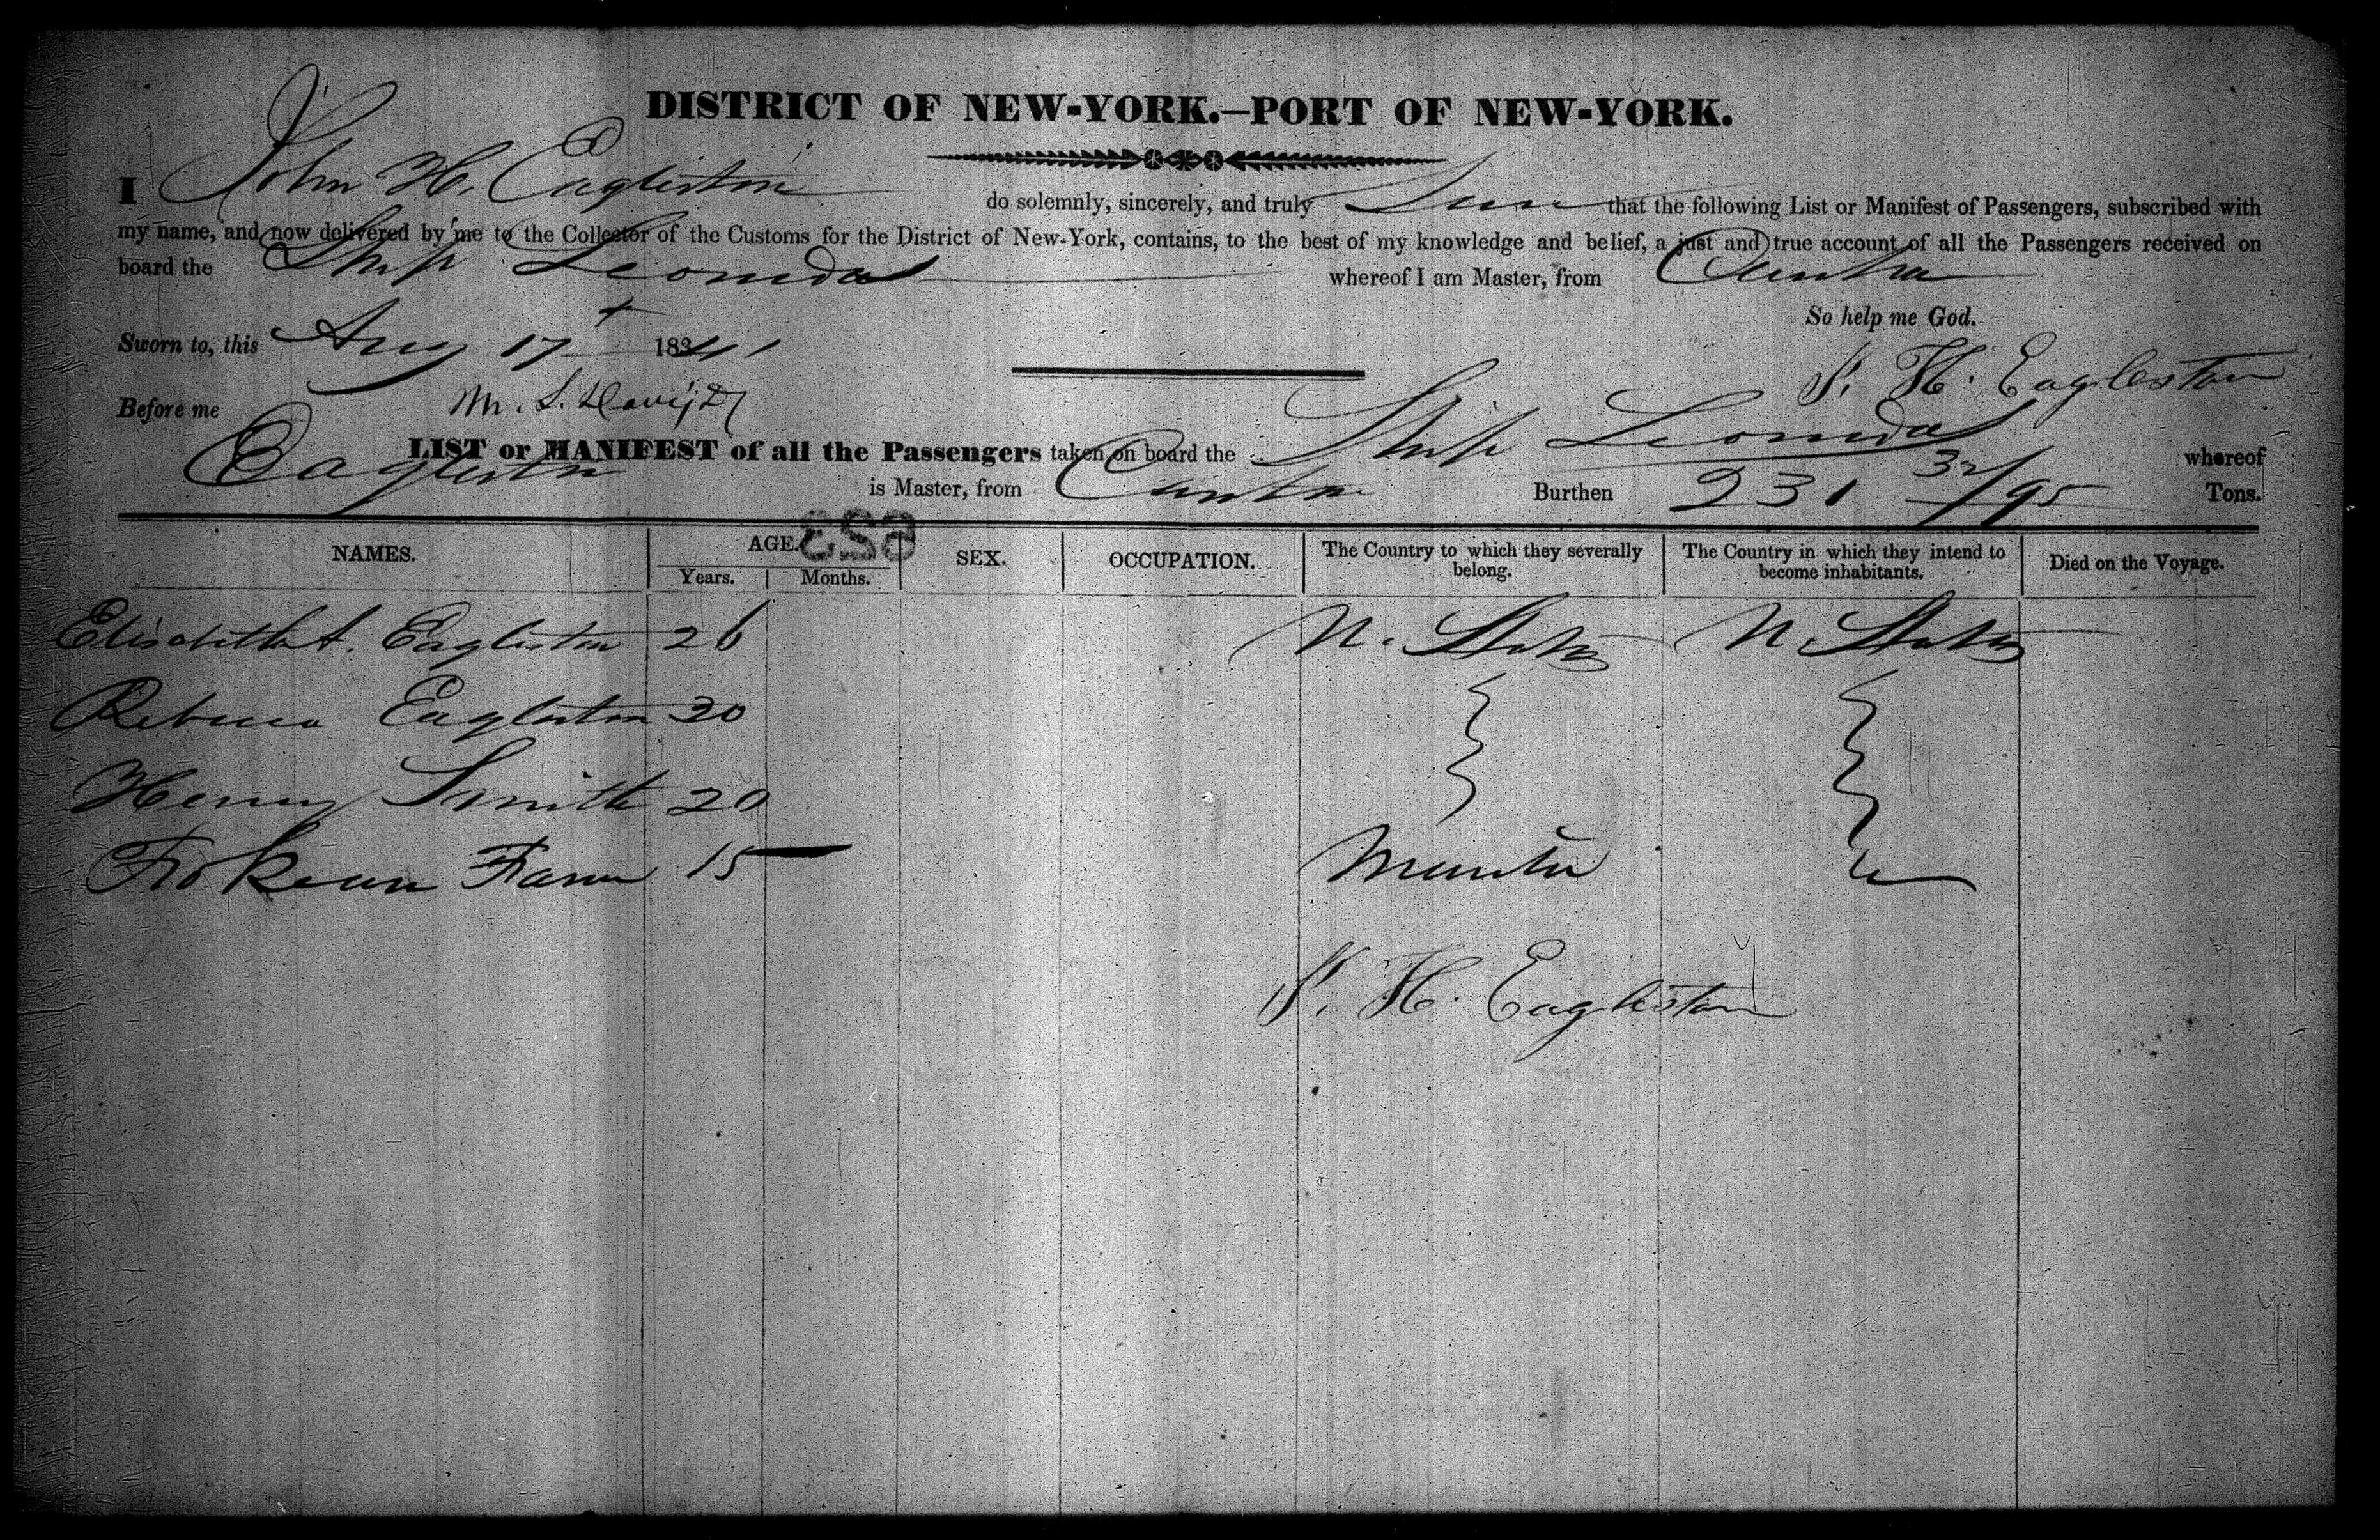 DISTRICT OF NEW-YORK.—PORT OF NEW-YORK.
I John H. Eagleston do solemnly, sincerely, and truly that the following List or Manifest of Passengers, subscribed with
my name, and now delivered by me to the Collector of the Customs for the District of New-York, contains, to the best of my knowledge and belief, a just and true account of all the Passengers received on
board the Ship Leonidas whereof I am Master, from
So help me God.
Sworn to, this Aug 17 1841
J. H. Eagleston
Before me
LIST or MANIFEST of all the Passengers taken on board the Ship Leonidas whereof
Eagleston is Master, from Burthen 231 32/95 Tons.
623
NAMES. AGE. SEX. OCCUPATION. The Country to which they severally belong. The Country in which they intend to become inhabitants. Died on the Voyage.
Years. Months.
Elisabeth A. Eagleston 26 U. States U. States
Rebecca Eagleston 20
Henry Smith 20
15
J. H. Eagleston